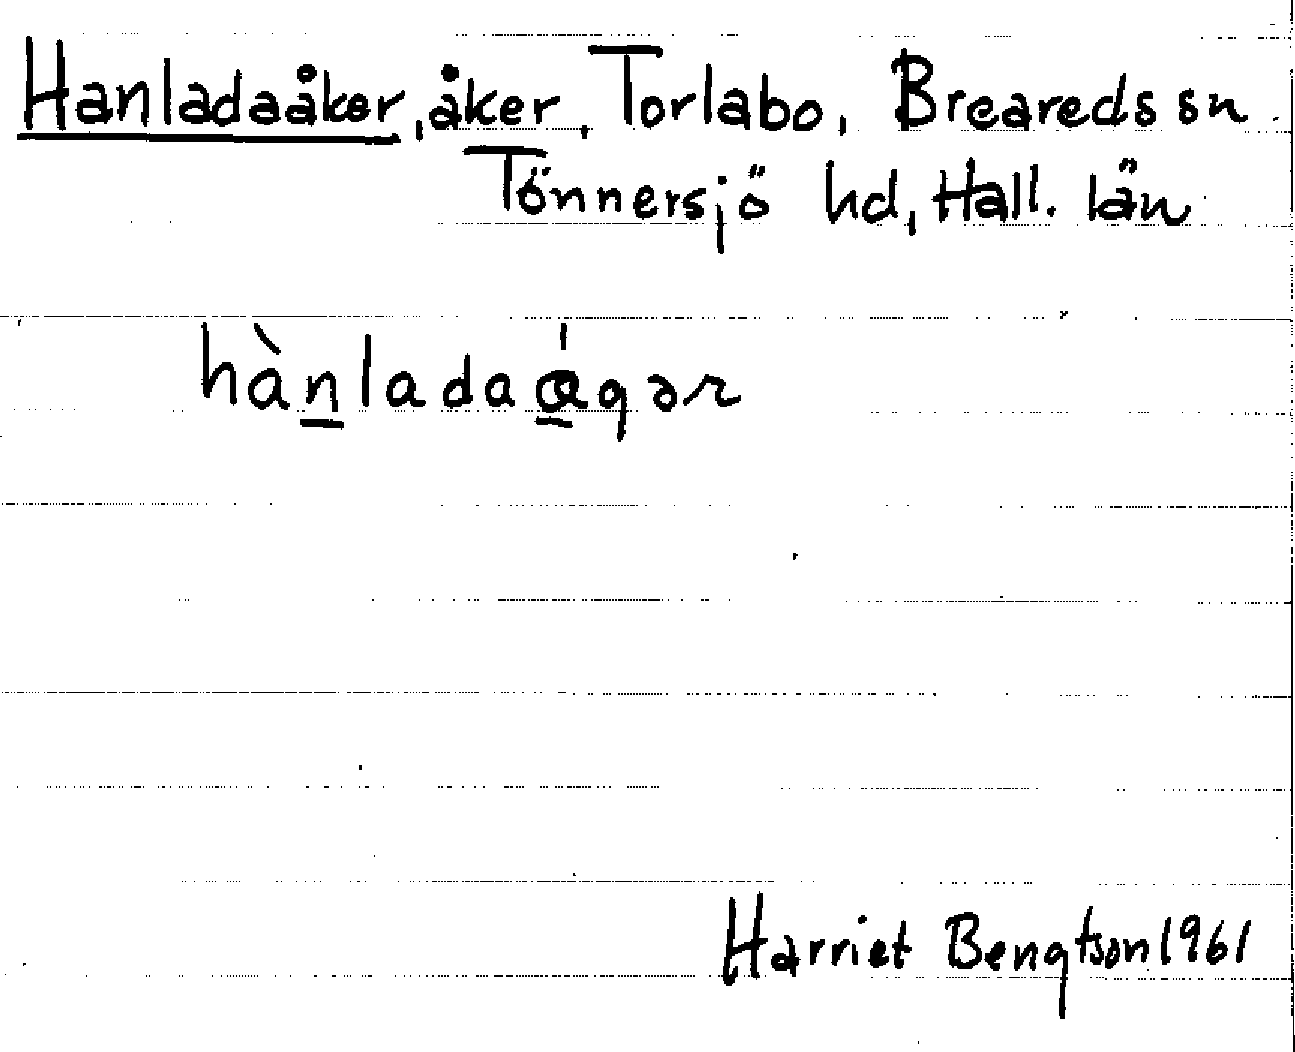 Hanladaåker, åker, Torlabo, Breareds sn
Tönnersjö hd, Hall. län
hànladaágər
Harriet Bengtson 1961